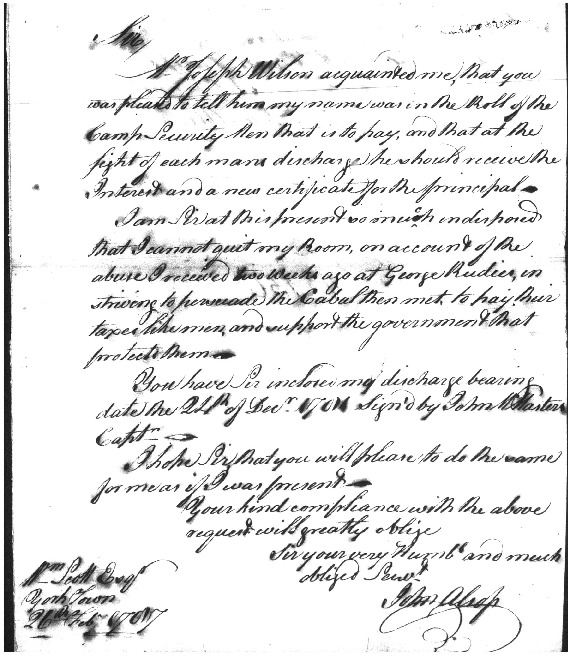 Sir,
Mr Joseph Wilson acquainted me, that you
was pleasd to tell him my name was in the Roll of the
Camp Security Men that is to pay, and that at the
sight of each mans discharge he should receive the
Interest and a new certificate for the principal
I am Sir at this present so much indisposed
that I cannot quit my Room, on account of the
abuse I received two weeks ago at George Rudies, in
striving to persuade the Cabal then met, to pay their
taxes like men, and support the government that
protects them
You have Sir inclosed my discharge bearing
date the of Decr. Signd by John
Captn
I hope Sir, that you will please to do the same
for me as if I was present
Your kind compliance with the above
request will greatly oblige
Sir your very Humbe and much
obliged Servt
John Alsop
Wm Scott Esqr
York Town
26th Feby